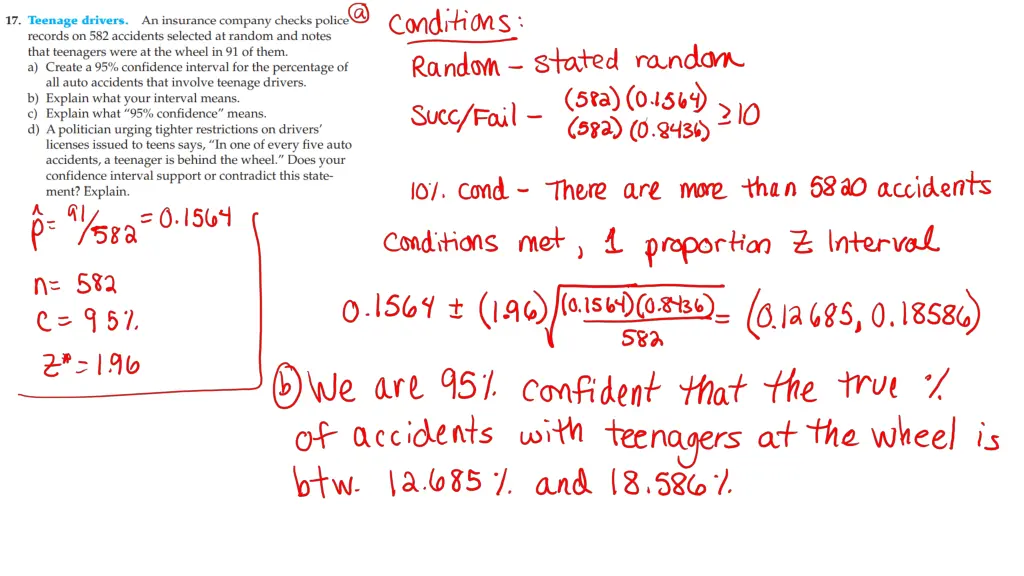 17. Teenage drivers. An insurance company checks police
records on 582 accidents selected at random and notes
that teenagers were at the wheel in 91 of them.
a) Create a 95% confidence interval for the percentage of
all auto accidents that involve teenage drivers.
b) Explain what your interval means.
c) Explain what "95% confidence" means.
d) A politician urging tighter restrictions on drivers'
licenses issued to teens says, "In one of every five auto
accidents, a teenager is behind the wheel." Does your
confidence interval support or contradict this state-
ment? Explain.
p̂ = 91/582 = 0.1564
n = 582
C = 95%
Z* = 1.96
(a) Conditions:
Random – stated random
Succ/Fail – (582)(0.1564)
(582)(0.8436) ≥ 10
10% cond – There are more than 5820 accidents
Conditions met, 1 proportion Z Interval
0.1564 ± (1.96) √((0.1564)(0.8436)/582) = (0.12685, 0.18586)
(b) We are 95% confident that the true %
of accidents with teenagers at the wheel is
btw. 12.685% and 18.586%.